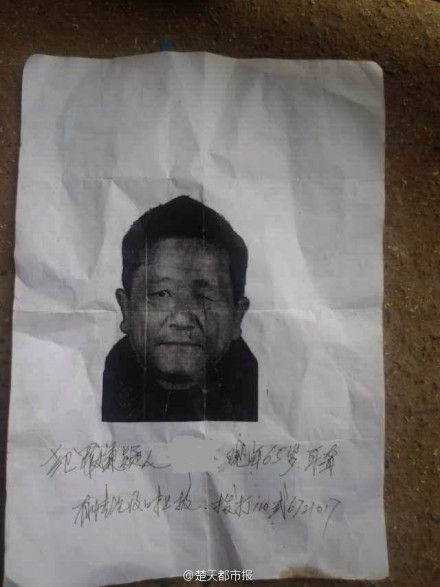 犯罪嫌疑人 现年65岁 耳聋
有情况及时上报.拨打110或6721017
@楚天都市报